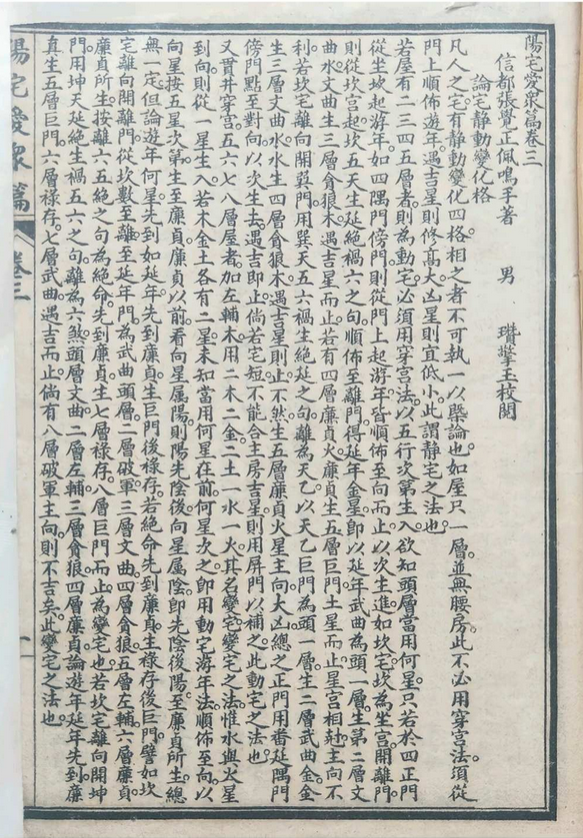 陽宅愛衆篇卷三
信都張覺正佩鳴手著 男 瓚擎玉校閱
論宅靜動變化格
凡人之宅有靜動變化四格相之者不可執一以槩論也如屋只一層並無腰房此不必用穿宮法須從
門上順佈遊年遇吉星則修高大凶星則宜低小此謂靜宅之法也
若屋有二三四五層者則為動宅必須用穿宮法以五行次第生入欲知頭層當用何星只若於四正門
從坐坎起游年如四隅門傍門則從門上起游年皆順佈至向而止以次生進如坎宅坎為坐宮開離門
則從坎宮起坎五天生延絕禍六之句順佈至離門得延年金星即以延年武曲為頭一層生第二層文
曲水文曲生三層貪狼木遇吉星而止若有四層廉貞火廉貞生五層巨門土星而止星宮相尅主向不
利若坎宅離向開巽門用巽天五六禍生絕延之句離為天乙以天乙巨門為頭一層生二層武曲金金
生三層文曲水水生四層貪狼木遇吉星則止不然生五層廉貞火星主向大凶總之正門用番延隅門
傍門點至對向以次生去遇吉即止倘若宅短不能合主房吉星則用屏門以補之此動宅之法也
又貫井穿宮五六七八層屋者加左輔木用二木二金二土一水一火其名變宅變宅之法惟水與火星
到向則從一星生入若木金土各有二星未知當用何星在前何星次之即用動宅游年法順佈至向以
向星按五星次第生至廉貞廉貞以前看向星属陽則陽先陰後向星属陰即先陰後陽至廉貞所生總
無一定但論遊年何星先到如延年先到廉貞生巨門後祿存若絕命先到廉貞生祿存後巨門譬如坎
宅離向開離門從坎數至離至延年門為武曲頭層二層破軍三層文曲四層貪狼五層左輔六層廉貞
廉貞所生按離六五絕之句為絕命先到廉貞生七層祿存八層巨門而止為變宅也若坎宅離向開坤
門用坤天延絕生禍五六之句離為六煞頭層文曲二層左輔三層貪狼四層廉貞論遊年延年先到廉
真生五層巨門六層祿存七層武曲遇吉而止倘有八層破軍主向則不吉矣此變宅之法也
陽宅愛衆篇 卷三 一